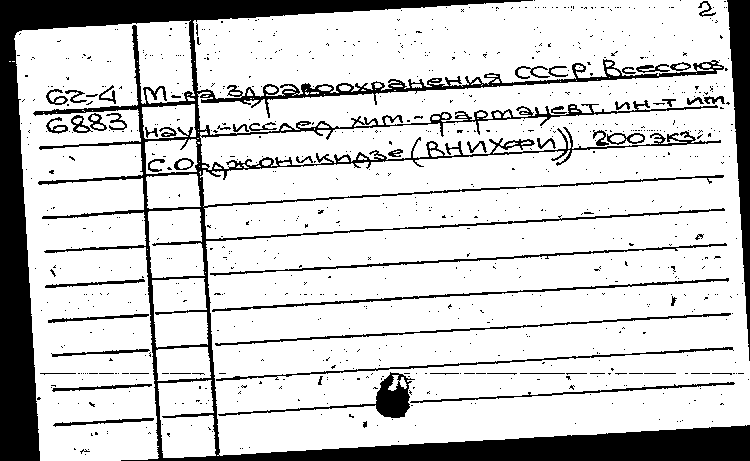 2
62-4 М-ва здравоохранения СССР. Всесоюз.
6883 научн.-исслед. хим.-фармацевт. ин-т им.
С. Орджоникидзе (ВНИХФИ)). 200 экз.